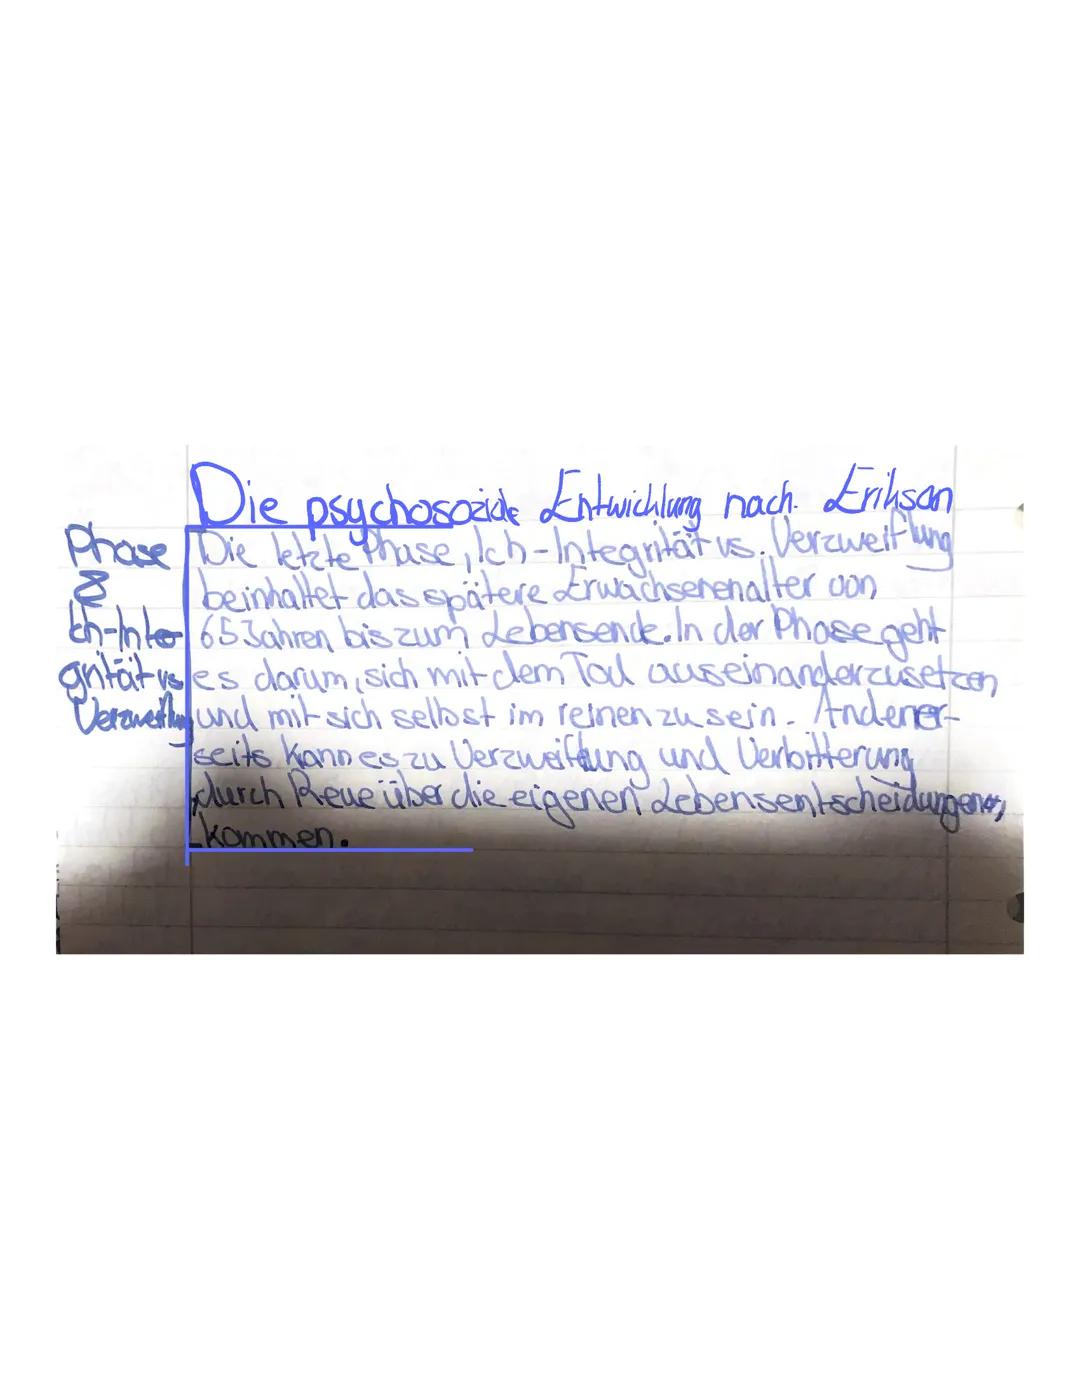 Die psychosoziale Entwicklung nach Erikson
Phase
8
Ich-Inte-
grität vs
Verzweiflung
Die letzte Phase, Ich-Integrität vs. Verzweiflung
beinhaltet das spätere Erwachsenenalter von
65 Jahren bis zum Lebensende. In der Phase geht
es darum, sich mit dem Tod auseinanderzusetzen
und mit sich selbst im reinen zu sein. Anderer-
seits kann es zu Verzweiflung und Verbitterung
durch Reue über die eigenen Lebensentscheidungen,
kommen.